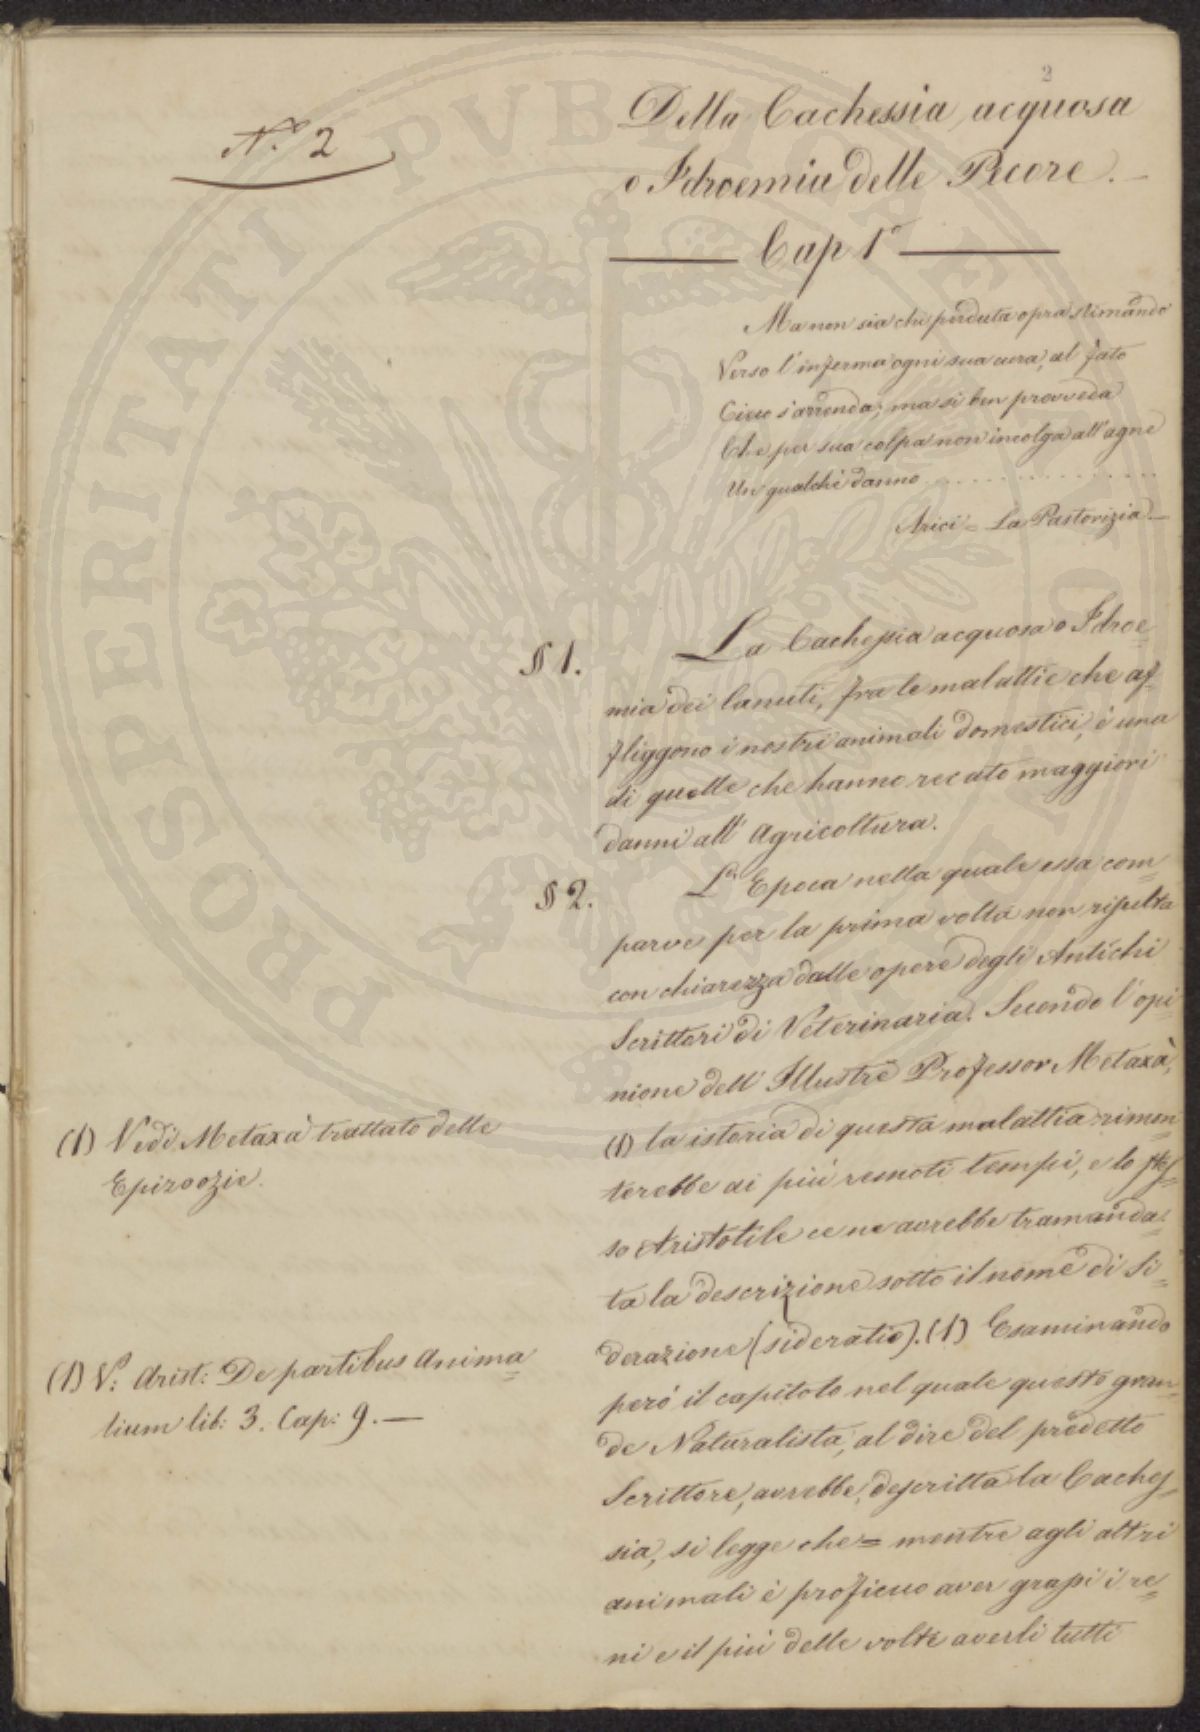 2
N.º 2
Della Cachessia acquosa
o Idroemia delle Pecore. —
Cap 1º
Ma non sia che perduta opra stimando
Verso l'inferma ogni sua cura, al fato
Cieco s'arrenda; ma si ben provveda
Che per sua colpa non incolga all'agne
Un qualche danno . . . . . . . . . . . . . . . .
Arici = La Pastorizia —
§ 1. La Cachessia acquosa o Idroe=
mia dei lanuti, fra le malattie che af=
fliggono i nostri animali domestici, è una
di quelle che hanno recato maggiori
danni all' Agricoltura.
§ 2. L' Epoca nella quale essa com=
parve per la prima volta non risulta
con chiarezza dalle opere degli Antichi
Scrittori di Veterinaria. Secondo l'opi=
nione dell' Illustre Professor Metaxà,
(1) la istoria di questa malattia rimon=
terebbe ai più remoti tempi, e lo stes=
so Aristotile ce ne avrebbe tramanda=
ta la descrizione sotto il nome di Si=
derazione (sideratio). (1) Esaminando
però il capitolo nel quale questo gran=
de Naturalista, al dire del predetto
Scrittore, avrebbe descritta la Caches=
sia, si legge che = mentre agli altri
animali è proficuo aver grassi i re=
ni e il più delle volte averli tutti
(1) Vedi Metaxà trattato delle
Epizoozie.
(1) V: Arist: De partibus anima=
lium lib: 3. Cap: 9. —
PROSPERITATI PVBLICAE